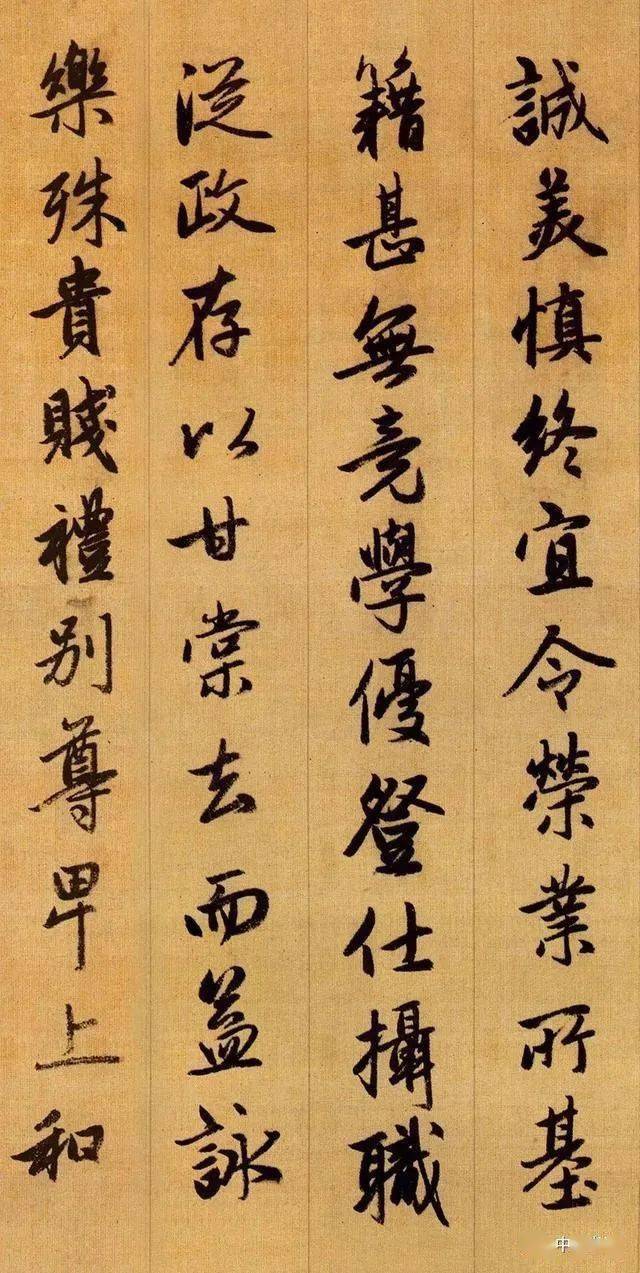 誠美慎終宜令榮業所基
籍甚無竟學優登仕攝職
從政存以甘棠去而益詠
樂殊貴賤禮別尊卑上和